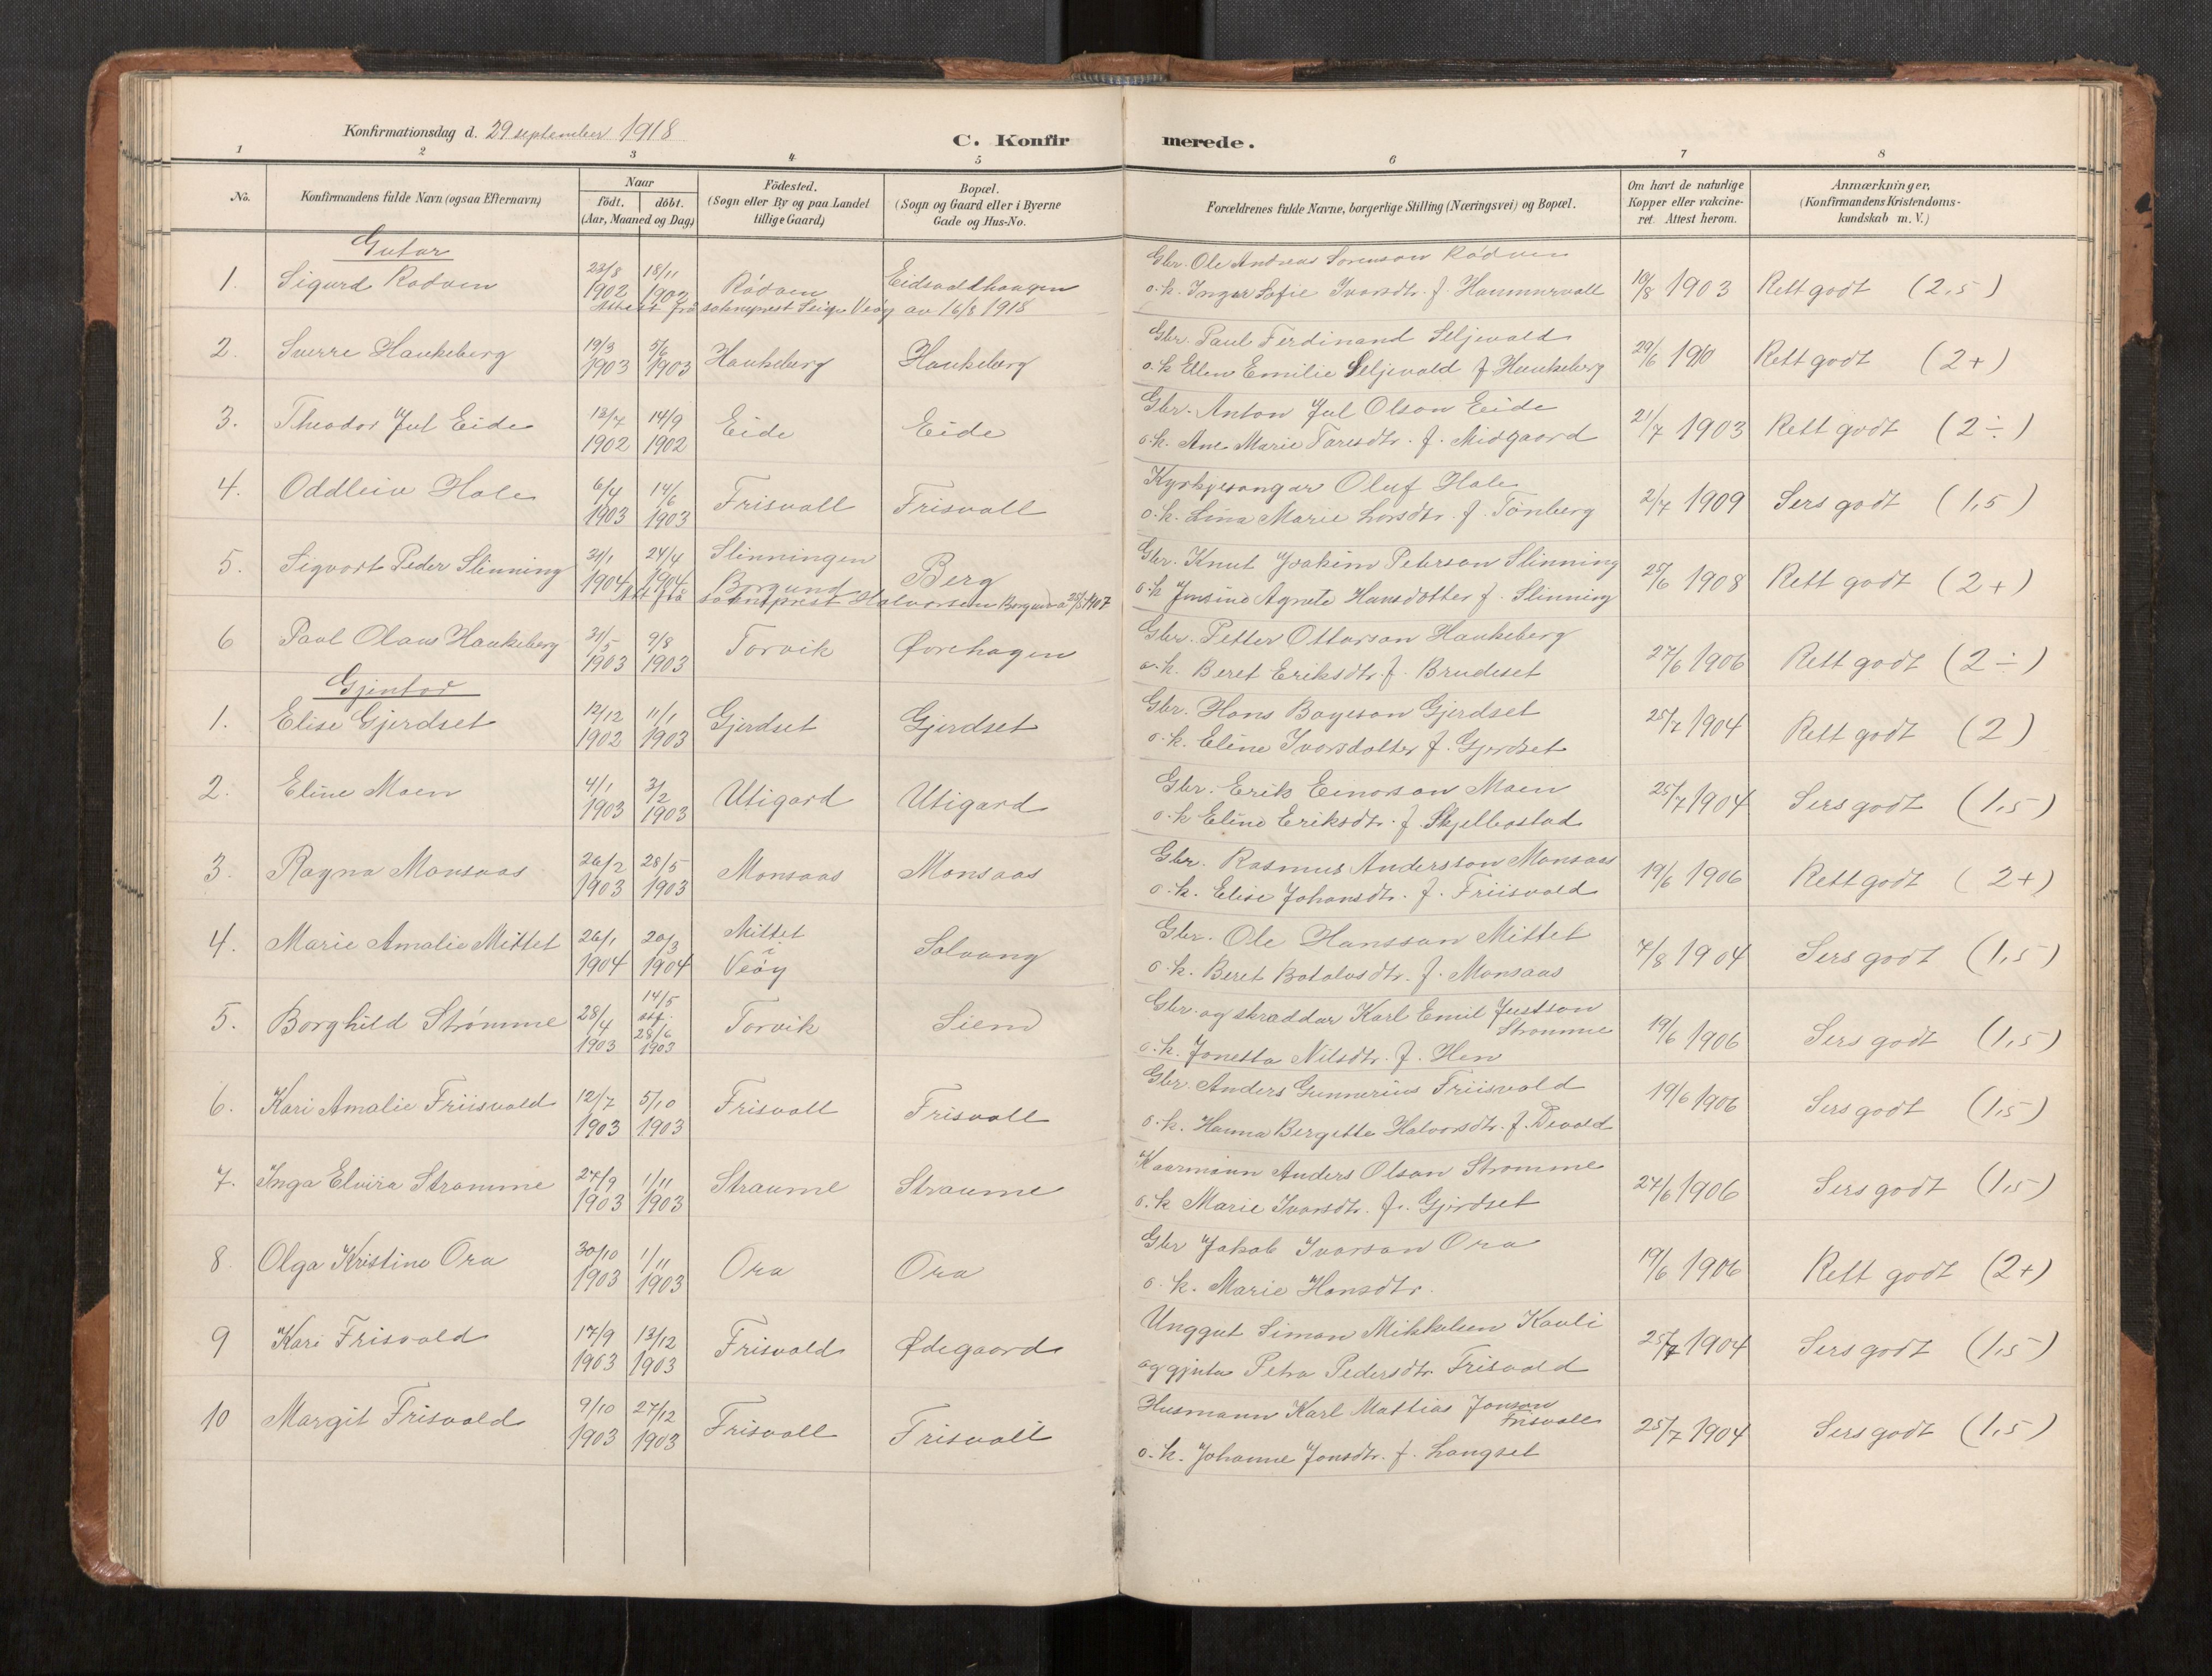 Konfirmationsdag d. 29 september 1918
C. Konfir merede.
1 2 3 4 5 6 7 8
No. Konfirmandens fulde Navn (ogsaa Efternavn) Naar født. døbt. (Aar, Maaned og Dag) Födested. (Sogn eller By og paa Landet tillige Gaard) Bopæl. (Sogn og Gaard eller i Byerne Gade og Hus-No. Forældrenes fulde Navne, borgerlige Stilling (Næringsvei) og Bopæl. Om havt de naturlige Kopper eller vakcineret. Attest herom. Anmærkninger, (Konfirmandens Kristendomskundskab m. V.)
Gutar
1. Sigurd Rødven 23/8 1902 18/11 1902 Rødven Eidsvaldhaugen Gbr. Ole Andreas Sørenson Rødven
o. k. Inger Sofie Ivarsdtr. f. Hammervoll 10/8 1903 Rett godt (2,5)
Attest frå sokneprest Veøy av 16/8 1918
2. Sverre Haukeberg 19/3 1903 5/6 1903 Haukeberg Haukeberg Gbr. Paul Ferdinand Seljevald
o. k Ellen Emilie Seljevald f Haukeberg 29/6 1910 Rett godt (2+)
3. Theodor Jul Eide 13/7 1902 14/9 1902 Eide Eide Gbr. Anton Jul Olson Eide
o. k. Ane Marie Taresdtr. f. Midgaard 21/7 1903 Rett godt (2÷)
4. Oddleiv Hole 6/4 1903 14/6 1903 Frisvoll Frisvoll Kyrkjesongar Oluf Hole
o. k. Lina Marie Larsdtr. f. Tønberg 2/7 1909 Sers godt (1,5)
5. Sigvart Peder Slinning 31/1 1904 24/4 1904 Slinningen Borgund Berg Gbr. Knut Joakim Peterson Slinning
o. k Jensine Agnete Hansdotter f. Slinning 25/6 1908 Rett godt (2+)
Att frå sokneprest Halvorsen Borgund 1907
6 Paul Olaus Haukeberg 31/5 1903 9/8 1903 Torvik Ørehagen Gbr. Petter Ottarson Haukeberg
o. k. Beret Eriksdtr. f. Brudeset 27/6 1906 Rett godt (2÷)
Gjentor
1. Elise Gjerdset 12/12 1902 11/1 1903 Gjerdset Gjerdset Gbr. Hans Bøyeson Gjerdset
o. k. Eline Ivarsdotter f. Gjerdset 25/7 1904 Rett godt (2)
2. Eline Moen 4/1 1903 3/2 1903 Utigard Utigard Gbr. Erik Einarson Moen
o. k Eline Eriksdtr. f. Skjelbostad 25/7 1904 Sers godt (1,5)
3. Ragna Monsaas 26/2 1903 28/5 1903 Monsaas Monsaas Gbr. Rasmus Andersson Monsaas
o. k. Elise Johansdtr. f. Friisvold 19/6 1906 Rett godt (2+)
4. Marie Amalie Mittet 26/1 1904 20/3 1904 Mittet i Veøy Solvang Gbr. Ole Hansson Mittet
o. k. Beret Botolvsdtr. f. Monsaas 7/8 1904 Sers godt (1,5)
5. Borghild Strømme 28/4 1903 14/5 stf. 28/6 1903 Torvik Siem Gbr. og skræddar Karl Emil Justson Strømme
o. k. Jonetta Nilsdtr. f. Hen 19/6 1906 Sers godt (1,5)
6. Kari Amalie Friisvold 12/7 1903 5/10 1903 Frisvoll Frisvoll Gbr. Anders Gunnerius Friisvold
o. k. Hanna Bergette Halvorsdtr. f. Devold 19/6 1906 Sers godt (1,5)
7. Inga Elvira Strømme 27/9 1903 1/11 1903 Straume Straume Kaarmann Anders Olson Strømme
o. k Marie Ivarsdtr. f. Gjerdset 27/6 1906 Sers godt (1,5)
8. Olga Kristine Ora 30/10 1903 1/11 1903 Ora Ora Gbr Jakob Ivarson Ora
o. k. Marie Hansdtr. 19/6 1906 Rett godt (2+)
9 Kari Frisvold 17/9 1903 13/12 1903 Frisvold Ødegaard Unggut Simon Mikkelsen Kavli
og gjenta Petra Pedersdtr. Frisvold 25/7 1904 Sers godt (1,5)
10 Margit Frisvold 9/10 1903 27/12 1903 Frisvoll Frisvoll Husmann Karl Mattias Jonson Frisvoll
o. k. Johanne Jonsdtr. f. Langset 25/7 1904 Sers godt (1,5)